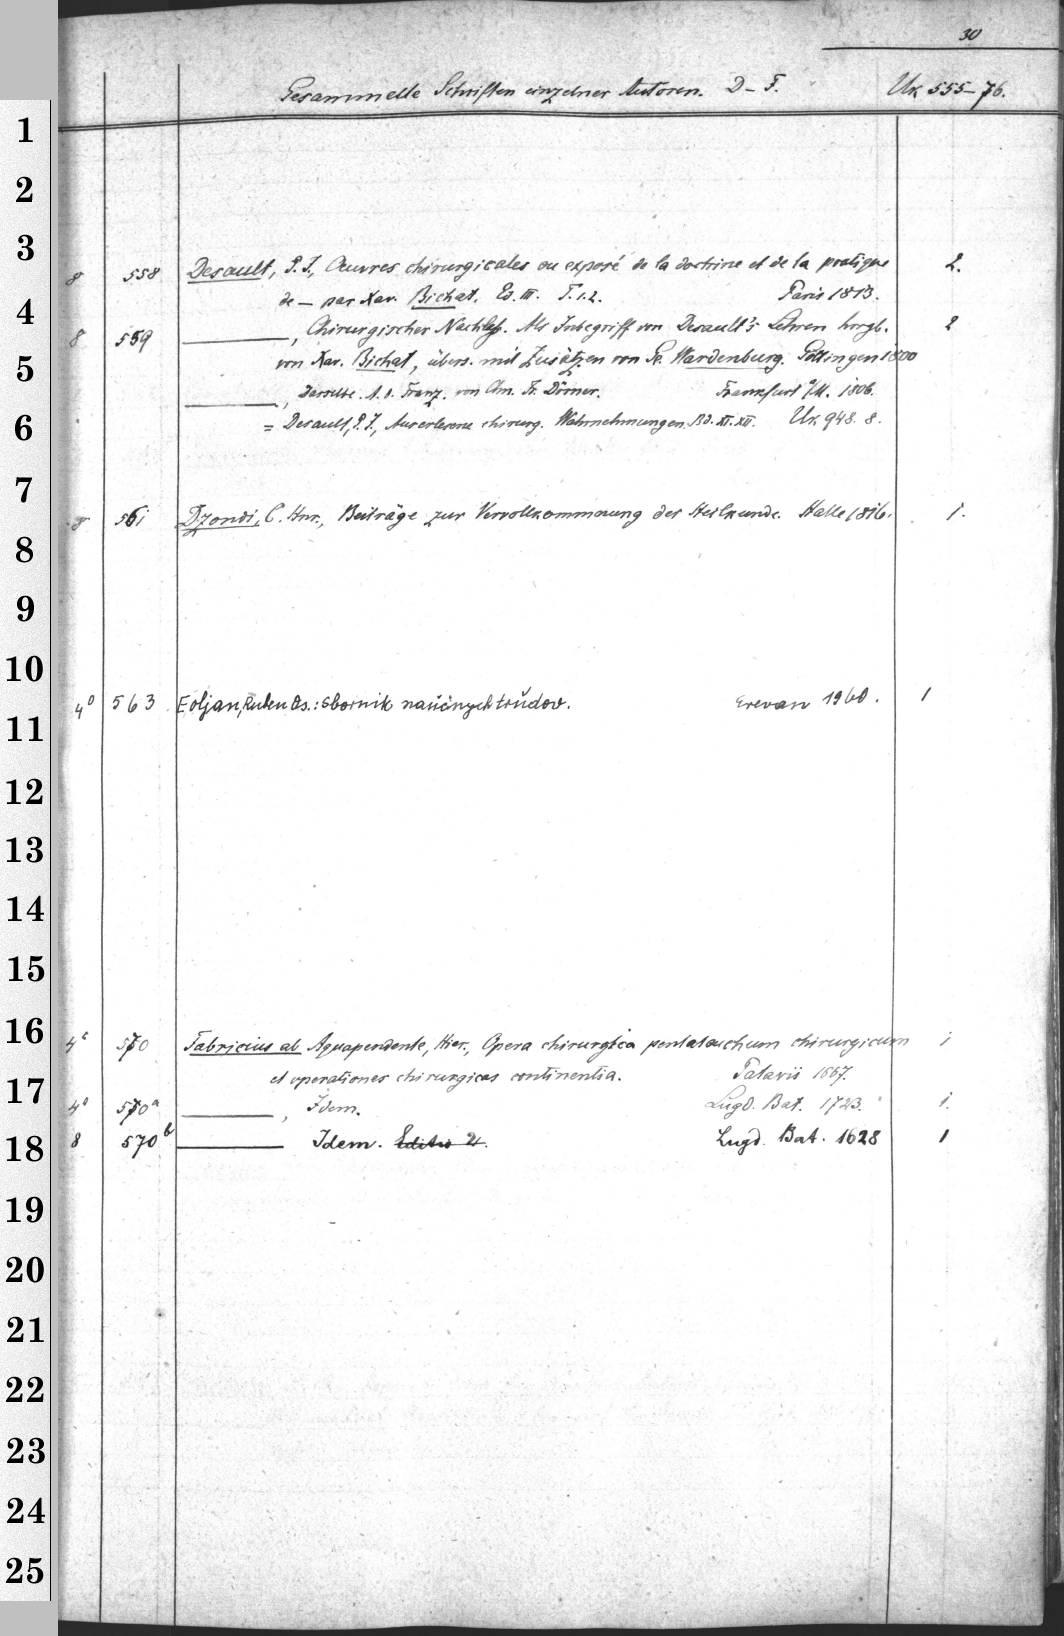 30
Gesammelte Schriften einzelner Autoren. D – F. Uk 555–76.
8 558 Desault, P. J., Oeuvres chirurgicales ou exposé de la doctrine et de la pratique 2.
de — par Xav. Bichat. Ed. III. T. 1.2. Paris 1813.
8 559 ———, Chirurgischer Nachlaß. Als Inbegriff von Desault's Lehren hrsgb. 2
von Xav. Bichat, übers. mit Zusätzen von Fr. Wardenburg. Göttingen 1800
———, Derselbe. A. d. Franz. von Chn. Fr. Dörner. Frankfurt a/M. 1806.
= Desault, P. J., Auserlesene chirurg. Wahrnehmungen. Bd. XI. XII. Uk 948. 8.
8 561 Dzondi, C. Hnr., Beiträge zur Vervollkommnung der Heilkunde. Halle 1816. 1.
4° 563 Eoljan, Ruben Os.: Sbornik naučnych trudov. Erevan 1960. 1
4° 570 Fabricius ab Aquapendente, Hier., Opera chirurgica pentateuchum chirurgicum 1
et operationes chirurgicas continentia. Patavii 1667.
4° 570a ———, Idem. Lugd. Bat. 1723. 1.
8 570b ——— Idem. Editio 2. Lugd. Bat. 1628 1
1
2
3
4
5
6
7
8
9
10
11
12
13
14
15
16
17
18
19
20
21
22
23
24
25